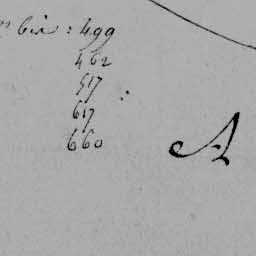 bis: 499
462
517 :
617
660
A